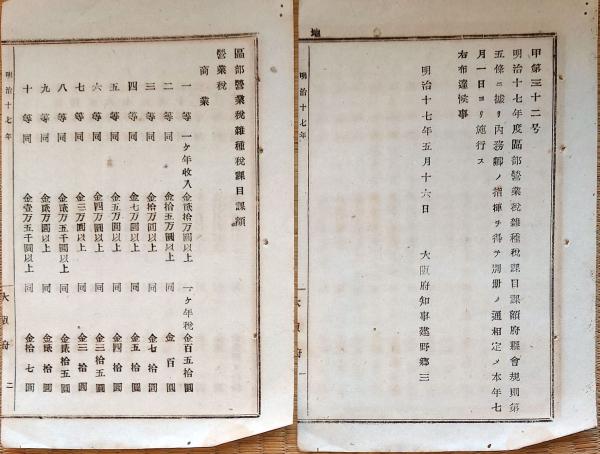 地
甲第三十二号
明治十七年度區部營業稅雜種稅課目課額府縣會規則第
五條ニ據リ內務卿ノ指揮ヲ得テ別册ノ通相定メ本年七
月一日ヨリ施行ス
右布達候事
明治十七年五月十六日 大阪府知事建野鄕三
大阪府 一
區部營業稅雜種稅課目課額
營業稅
商業
一等 一ケ年收入金貳拾万圓以上 一ケ年稅金百五拾圓
二等 同 金拾五万圓以上 同 金百圓
三等 同 金拾万圓以上 同 金七拾圓
四等 同 金七万圓以上 同 金五拾圓
五等 同 金五万圓以上 同 金四拾圓
六等 同 金四万圓以上 同 金三拾五圓
七等 同 金三万圓以上 同 金三拾圓
八等 同 金貳万五千圓以上 同 金貳拾五圓
九等 同 金貳万圓以上 同 金貳拾圓
十等 同 金壹万五千圓以上 同 金拾七圓
明治十七年 大阪府 二